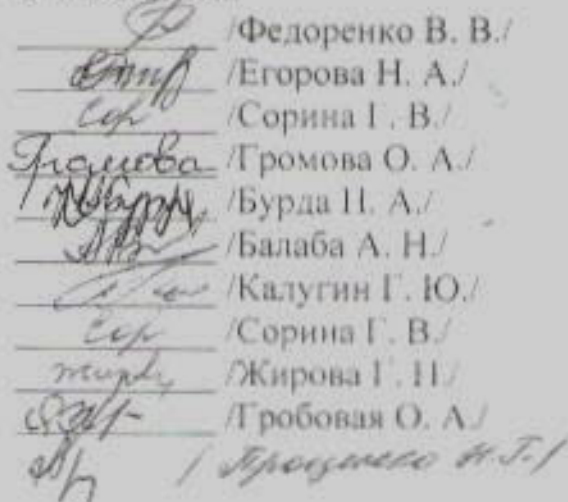 /Федоренко В. В./
/Егорова Н. А./
Сор /Сорина Г. В./
Громова /Громова О. А./
/Бурда Н. А./
/Балаба А. Н./
/Калугин Г. Ю./
Сор /Сорина Г. В./
/Жирова Г. Н./
/Гробовая О. А./
/ Н.Г./